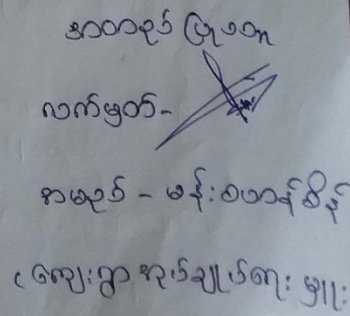 အတည်ပြုသူ
လက်မှတ် -
အမည် - မန်းစောန်စိန်
(ကျေးရွာအုပ်ချုပ်ရေးမှူး